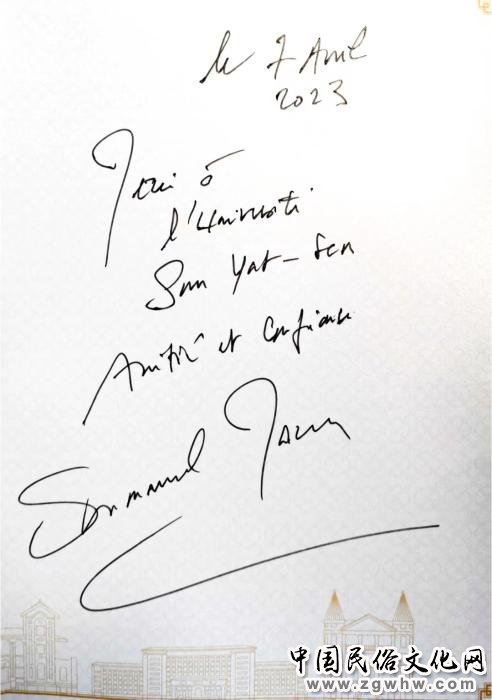 le 7 Avril
2023
Merci à
l'Université
Sun Yat-Sen
Amitié et Confiance
Emmanuel Macron
中国民俗文化网
www.zgwhw.com